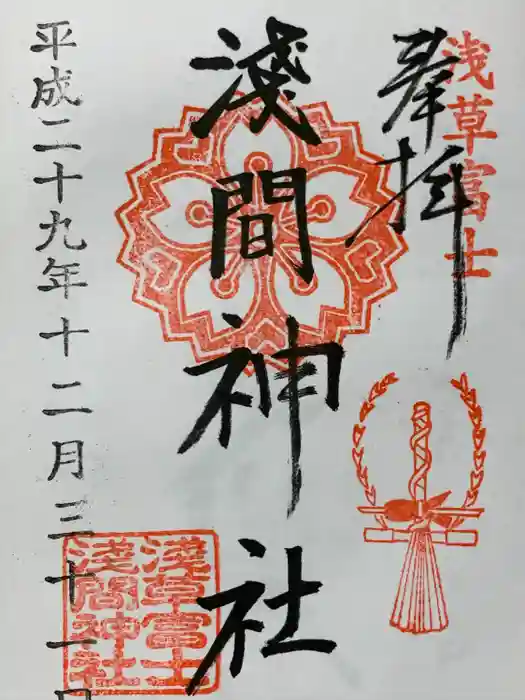 浅草富士
奉拝
淺間神社
平成二十九年十二月三十一日
淺草富士
淺間神社